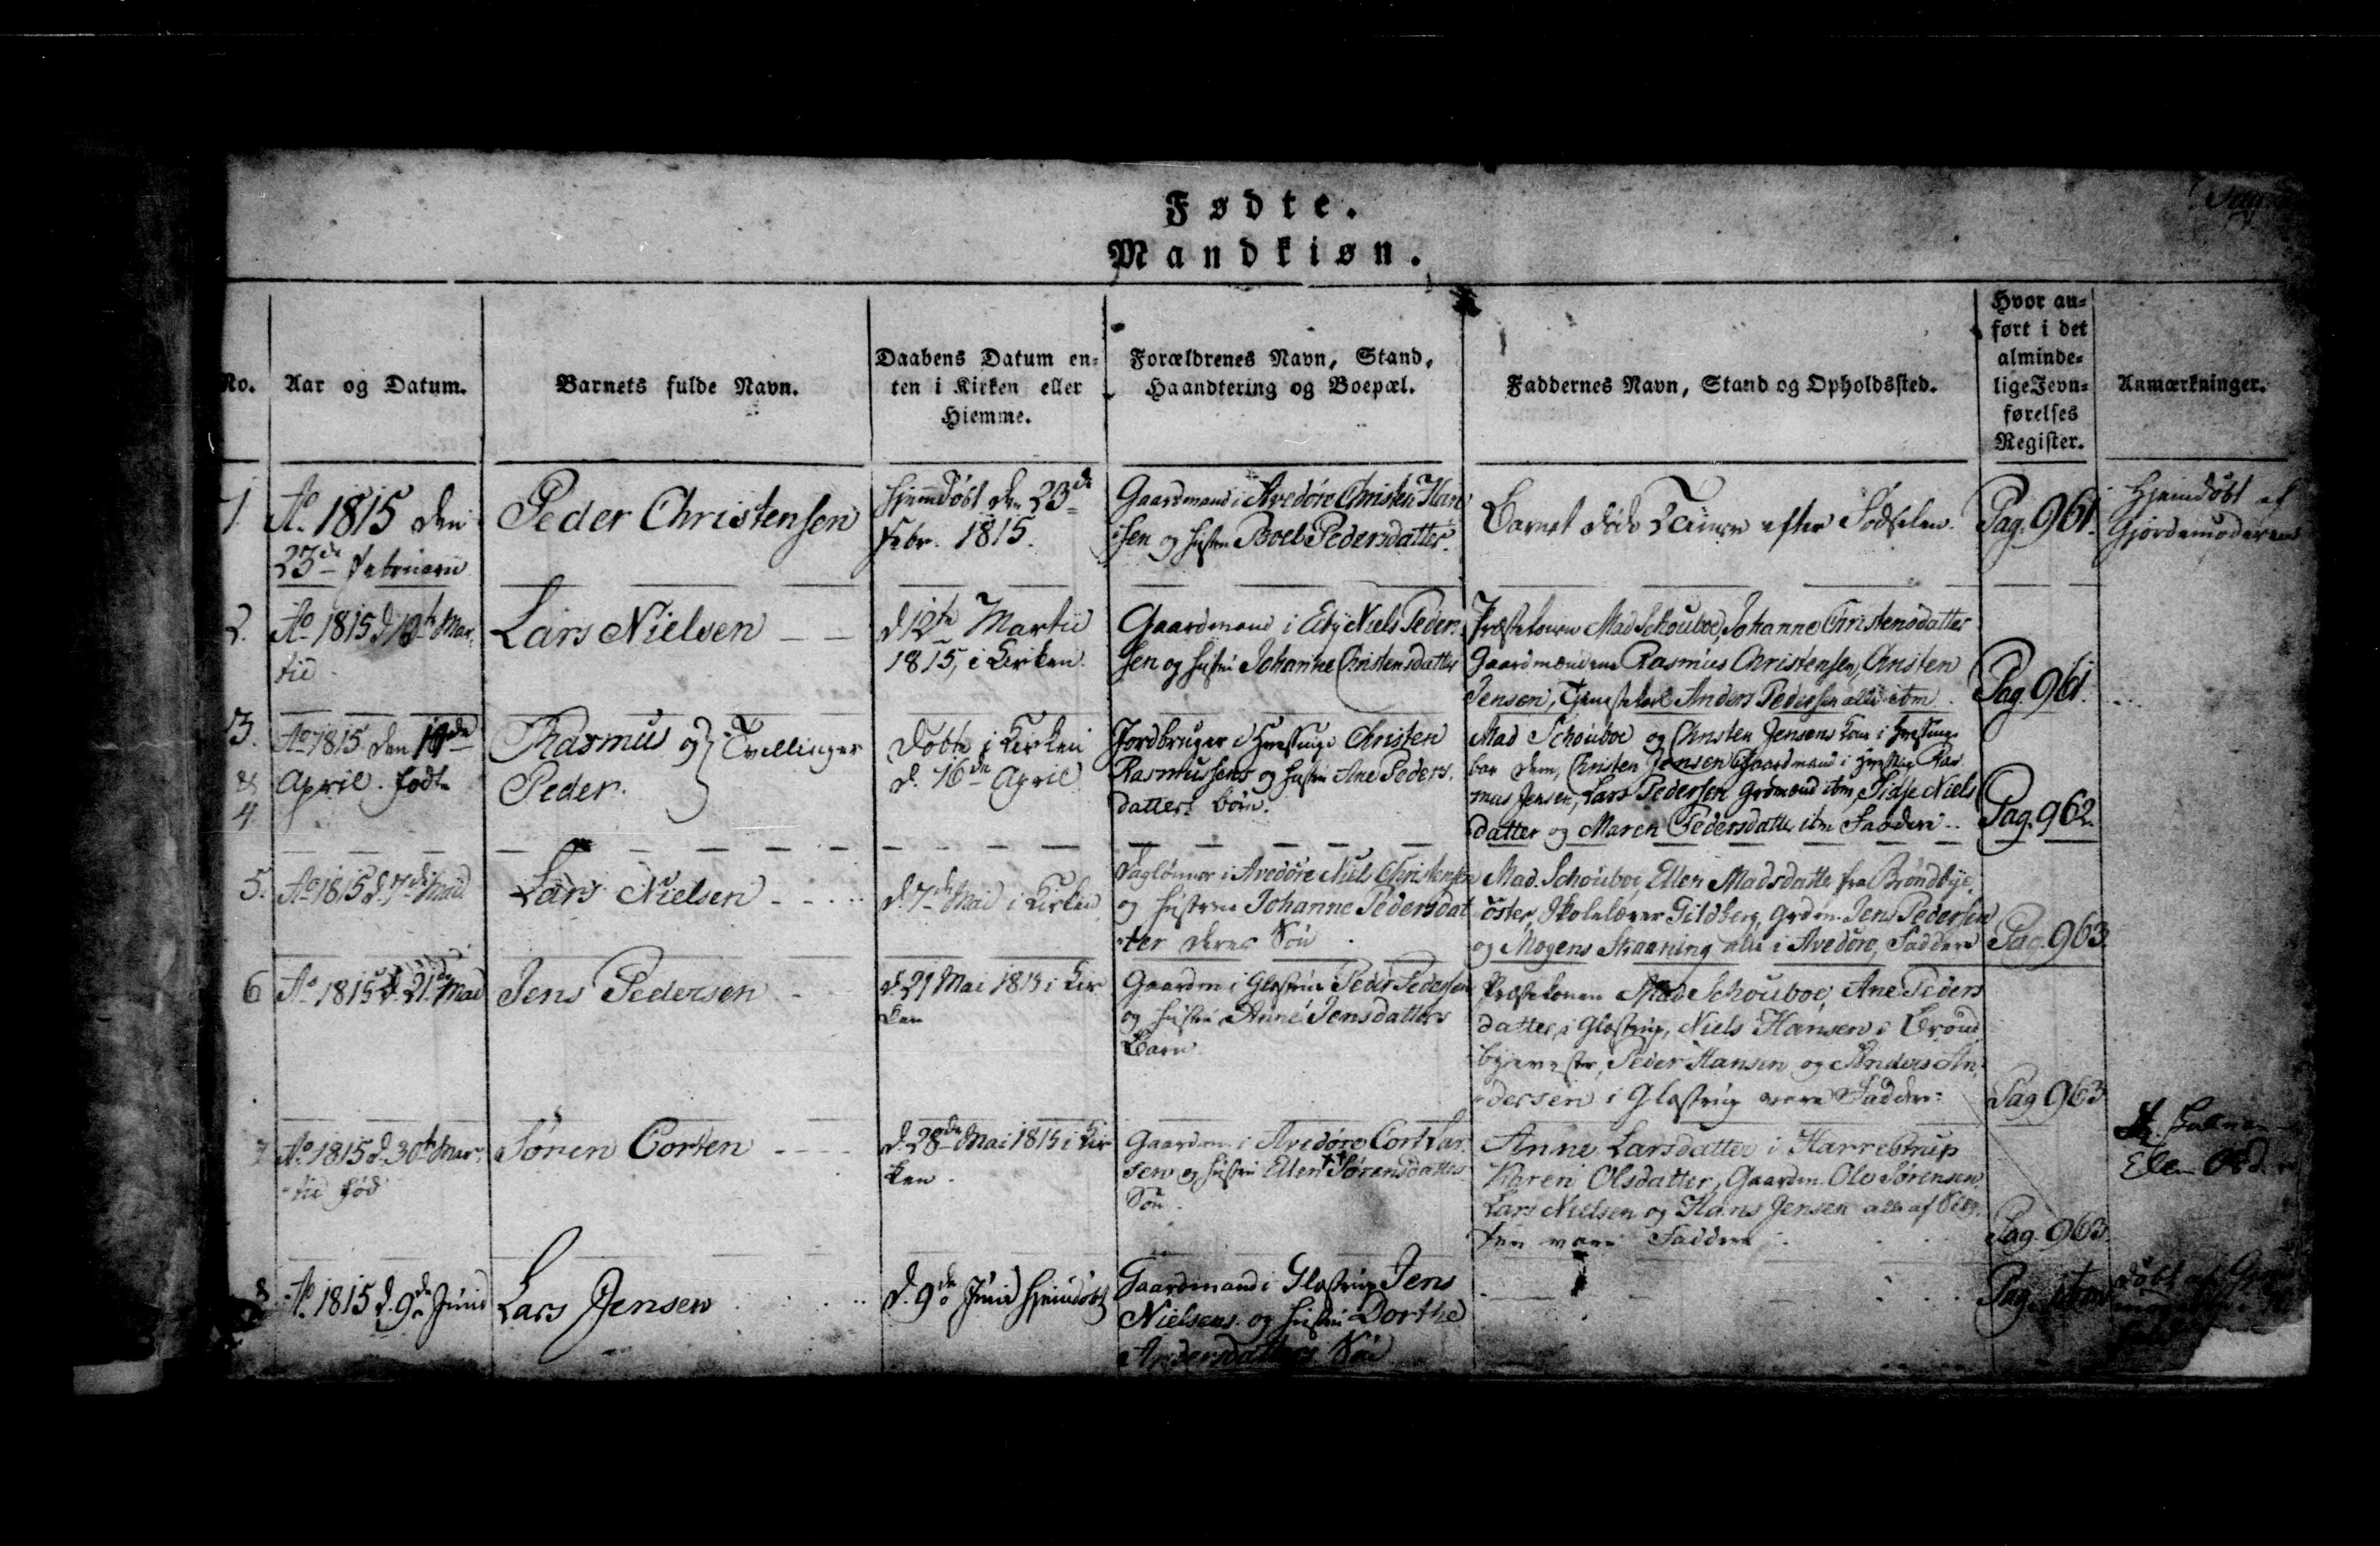 Fødte.
Mandkiøn.
No.
Aar og Datum.
Barnets fulde Navn.
Daabens Datum en-
ten i Kirken eller
Hiemme.
Forældrenes Navn, Stand,
Haandtering og Boepæl.
Faddernes Navn, Stand og Opholdssted.
Hvor an-
ført i det
alminde-
lige Jevn-
førelses
Register.
Anmærkninger.
1
Ao 1815 den
23de Februarii
Peder Christensen
Hjemdøbt den 23de
Febr. 1815.
Gaardmand i Avedøre Christen Han
sen og Hustru Boel Pedersdatter.
Barnet døde Timen efter Fødselen.
Pag. 961.
Hjemdøbt af
Gjordemoderen
2.
Ao 1815 d. 12te Mar
tii
Lars Nielsen
d 12te Martii
1815, i Kirken.
Gaardmand i Ebÿ Niels Peder
sen og Hustru Johanne Christensdatter
Præstekonen Mad Schouboe, Johanne Christensdatter
Gaardmændene Rasmus Christensen, Christen
Jensen, Tjenestekarl Anders Pedersen alle ibm
Pag. 961.
3.
&
4
Ao 1815 den
April. født
Rasmus og } Tvillinger
Peder.
Døbte i Kirken
d. 16de April
Jordbruger i Christen
Rasmussens og Hustru Ane Peders
datters børn.
Mad Schouboe og Christen Jensens Kone i
bar dem, Christen Jensen Gaardmand i Ras
mus Jensen, Lars Pedersen Grdmænd ibm, Sidse Niels
datter og Maren Pedersdatter ibm Faddere
Pag. 962.
5.
Ao 1815 d. 7de Maii
Lars Nielsen
d. 7de Mai i Kirken
Daglønner i Avedøre Niels Christensen
og Hustrue Johanne Pedersdat
ter deres Søn
Mad. Schouboe, Ellen Madsdatter fra Brøndbye
øster, Skolelærer Gildberg, Grdm. Jens Pedersen
og Mogens Skaaning alle i Avedøre, Faddere
Pag. 963.
6
Ao 1815 d. 21de Maii
Jens Pedersen
d. 21 Mai 1815 i Kir
ken
Gaardm. i Glostrup Peder Pedersen
og Hustru Anne Jensdatters
Barn
Præstekonen Mad Schouboe, Ane Peders
datter i Glostrup, Niels Hansen i Brønd
byevester, Peder Hansen og Anders An
dersen i Glostrup vare Faddere
Pag 963
7
Ao 1815 d. 30te Mar
tii fød
Søren Corten
d. 28de Mai 1815 i Kir
ken.
Gaardm. i Avedøre Cort Lar
sen og Hustru Ellen Sørensdatters
Søn.
Anne Larsdatter i Harrestrup
Karen Olsdatter, Gaardm. Ole Sørensen
Lars Nielsen og Hans Jensen alle af
vare Faddere
Pag. 963
8
Ao 1815 d. 9de Junii
Lars Jensen
d. 9de Junii Hjemdøbt
Gaardmand i Glostrup Jens
Nielsens og Hustru Dorthe
Andersdatters Søn
Pag. ibm
døbt af